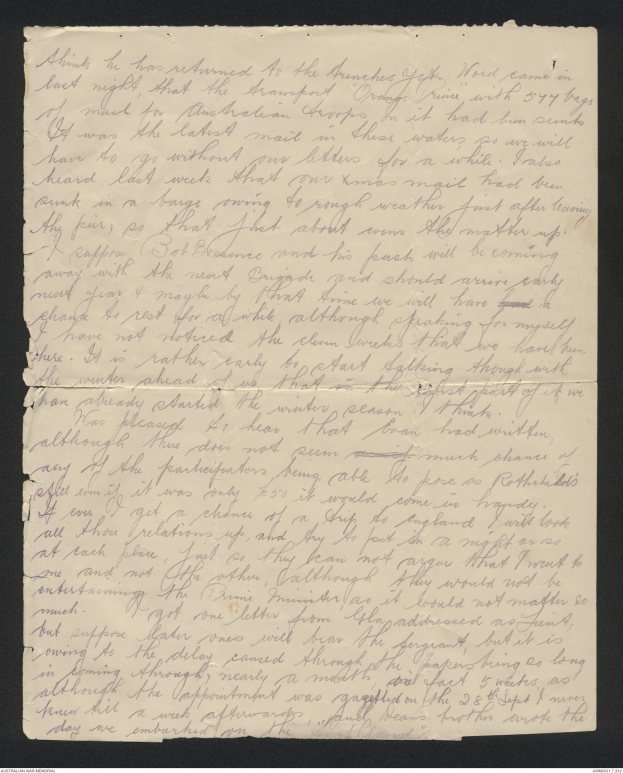 think he has returned to the trenches yet. Word came in
last night, that the transport "Orange rine" with 577 bags
of mail for Australian troops on it had been sunk
It was the latest mail in these waters so we will
have to go without our letters for a while. I also
heard last week that our Xmas mail had been
sunk in a barge owing to rough weather just after leaving
the pier, so that just about evens the matter up.
I suppose Bob and his push will be coming
away with the next Brigade and should arrive early
next year & maybe by that time we will have had a
chance to rest for a while although speaking for myself
I have not noticed the eleven weeks that we have been
here. It is rather early to start talking though with
the winter ahead of us that is the first part of it we
have already started the winter season I think.
Was pleased to hear that Evan had written,
although there does not seem much chance of
any of the participators being able to pose as Rothchild's
still even if it was only £50 it would come in handy.
If ever I get a chance of a trip to England I will look
all those relations up, and try to put in a night or so
at each place, just so they can not argue that I went to
one and not the other, although they would not be
entertaining the Prime Minister, so it would not matter so
much. I got one letter from Lola addressed as
but suppose later ones will bear the sergeant, but it is
owing to the delay caused through the papers being so long
in coming through, nearly a month in fact 5 weeks as
although the appointment was gazetted on the 28th Sept I never
knew till a week afterwards, and Deans brother wrote the
day we embarked on the
AUSTRALIAN WAR MEMORIAL
AWM2021.7.242